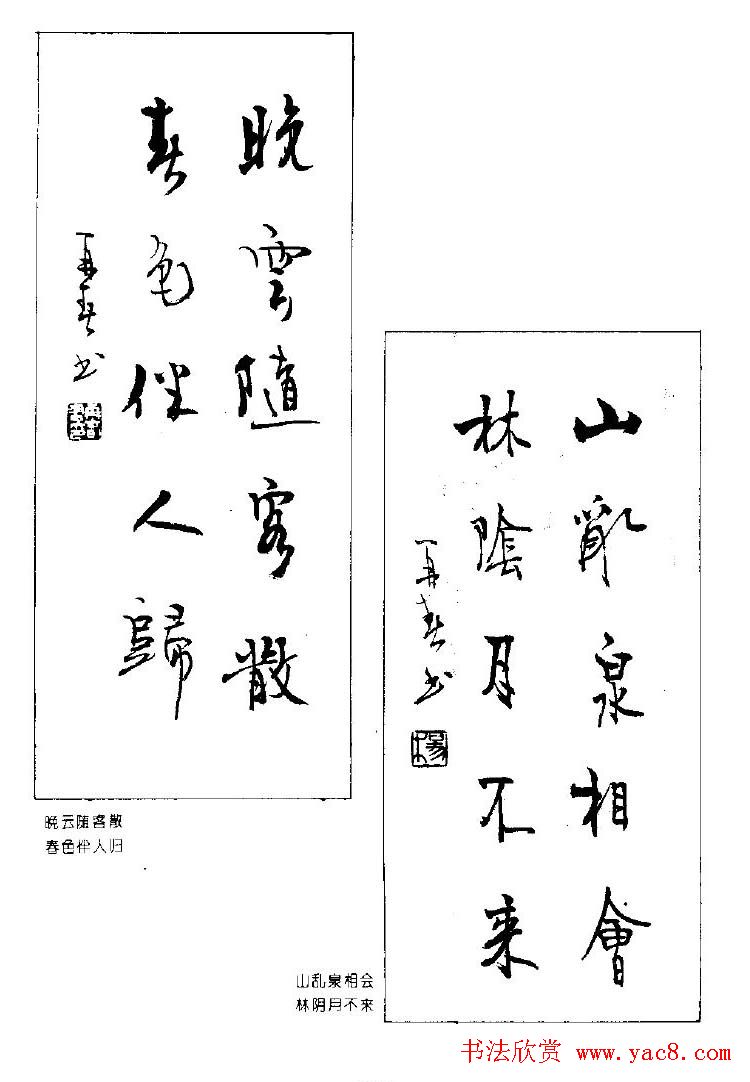 晚雲隨客散
春色伴人歸
再春書
晚云随客散
春色伴人归
山亂泉相會
林陰月不來
再春書
楊
山乱泉相会
林阴月不来
书法欣赏 www.yac8.com